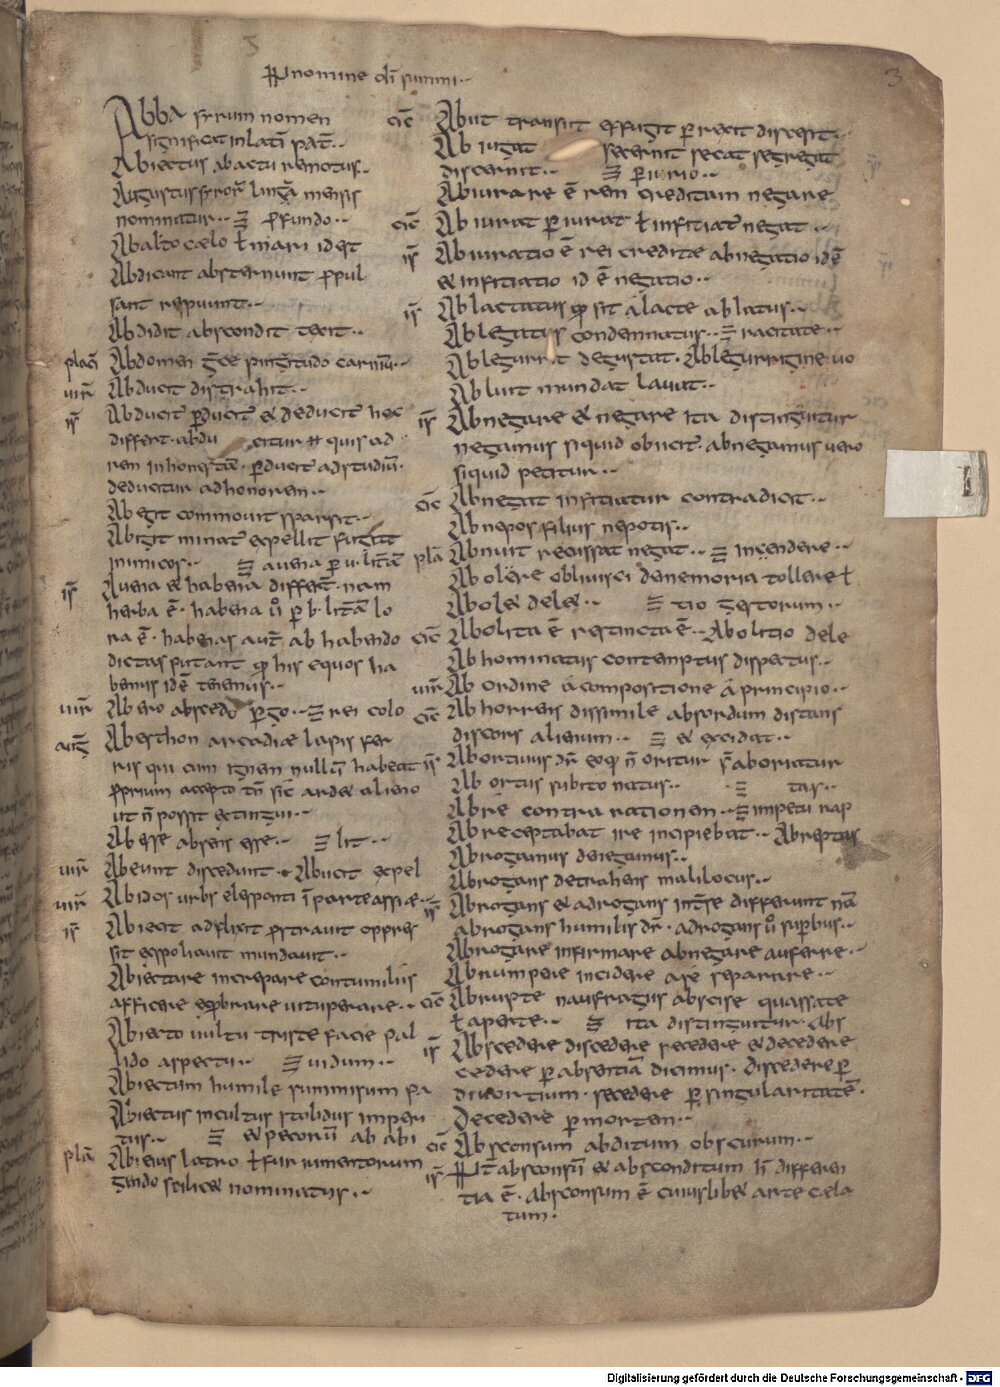 3
In nomine dī summi··
ciē
iſ
plaċ
uir̄
auḡ
Abba syrum nomen
significat in latī pat̄··
Abiectus ab actu remotus··
Augustus syror̄ linḡa mensis
nominatur·· profundo··
Ab alto cælo ł mari id est
Abdicant absternunt propul
sant respuunt··
Abdidit abscondit tegit··
Abdomen grece pinguitudo carniū··
Abducit distrahit··
Abducit perducit & deducit hec
differt· abdu citur quis ad
rem inhonestā· perducit ad studiū·
deducitur ad honorem··
Abegit commovit sparsit··
Abigit minat expellit fugat
inimicos·· avena per u· litt̄a
Avena & habena differt· nam
herba ē· habena ū per b· litt̄a lo
ra ē· habenas aut̄ ab habendo
dictas putant quod his equos ha
bemus id ē tenemus··
Abeo abscedo pergo·· rei colo
Abesthon arcadiæ lapis fer
ris qui cum ignem nullū habeat
proprium accepto tn̄ sic ardet alieno
ut n̄ possit extingui··
Abesse absens esse·· lit··
Abeunt discedunt· Abicit expel
Abidos urbs elesponti ī parte assiæ··
Abiecit adflixit prostrauit oppres
sit expoliauit mundauit··
Abiectare increpare contumiliis
afficere exprobrare uituperare··
Abiecto uultu triste facie pal
lido aspectu·· uidum··
Abiectum humile summisum
Abiectus incultus stolidus imperi
tus·· & pecorū ab abi
Abieius latro ł fur iumentorum
gendo scilicet nominatus··
Abiit transiit effugit perrexit discessit··
Ab iugat secernit secat segregat
discernit·· periurio··
Abiurare ē rem creditam negare
Abiurat periurat ł infitiat̄ negat··
Abiuratio ē rei creditæ abnegatio id ē
& infitiatio id ē negatio··
Ablactatus quod sit a lacte ablatus··
Ablegatus condemnatus·· racitate··
Ablegurrit degustat· Ablegurrigine uo
Abluit mundat lauat··
Abnegare & negare ita distinguitur
negamus siquid obiicit· abnegamus uero
siquid petitur··
Abnegat infitiatur contradicit··
Abnepos filius nepotis··
Abnuit recussat negat·· incendere··
Abolere oblivisci de memoria tollere ł
Abolet delet·· tio gestorum··
Abolita ē restincta ē·· Abolitio dele
Abhominatus contemptus dispectus··
Ab ordine a compositione a principio··
Abhorrens dissimile absordum distans
discors alienum·· & excidat··
Abortiuus dr̄ eo quod n̄ oritur s̄ aboriatur
Abortus subito natus·· tas··
Ab re contra rationem·· impetu rap
Abreceptabat ire incipiebat·· Abreptus
Abrogamus denegamus··
Abrogans detrahens malilocus··
Abrogans & adrogans inter se differunt nā
abrogans humilis dr̄· adrogans ū superbus··
Abrogare infirmare abnegare auferre··
Abrumpere incidere a se separare··
Abrupte naufragus abscise quassate
ł aperte·· ita distinguitur· Abs
Abscedere discedere recedere & decedere
cedere per absentiā dicimus· discedere per
diuortium· secedere per singularitatē·
Decedere per mortem··
Absconsum abditum obscurum··
It̄ absconsū & absconditum h̄ differen
tia ē· absconsum ē cuiuslibet arte cæla
tum·
Digitalisierung gefördert durch die Deutsche Forschungsgemeinschaft - DFG